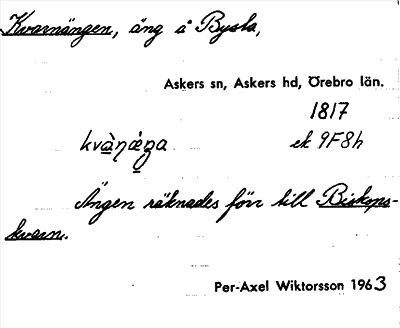 Kvarnängen, äng å Bysta,
Askers sn, Askers hd, Örebro län.
1817
kvà̱ŋǽ̱ŋa ek 9F8h
Ängen räknades förr till Biskops-
kvarn.
Per-Axel Wiktorsson 1963